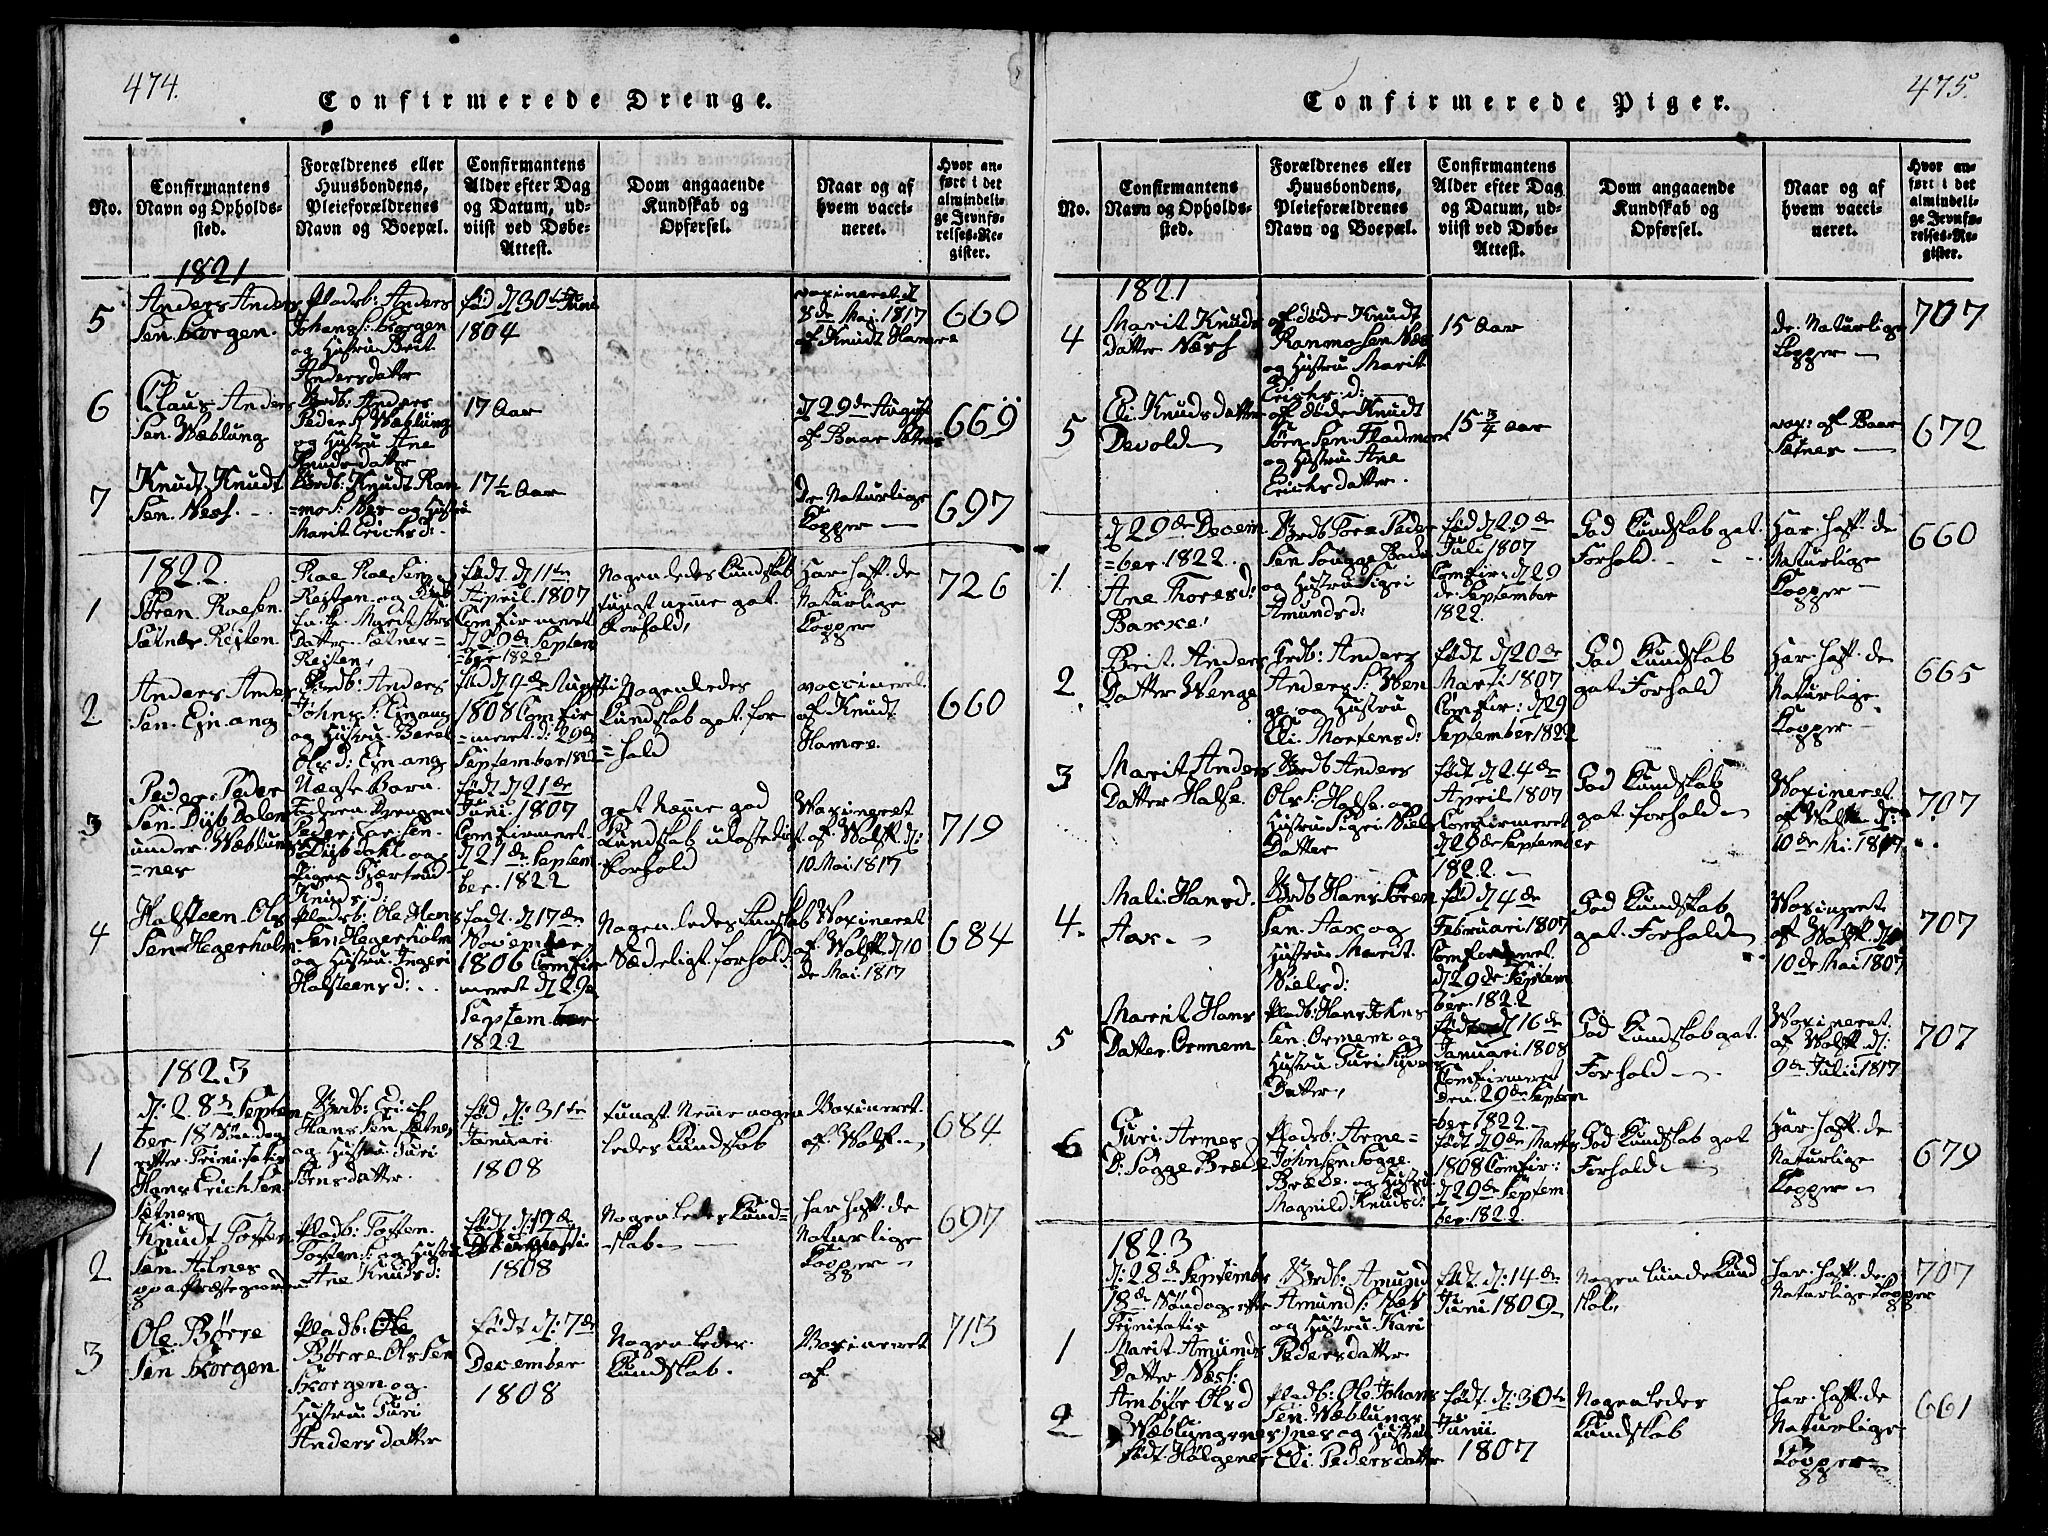 474.
Confirmerede Drenge.
No.
Confirmantens
Navn og Opholds-
sted.
Forældrenes eller
Huusbondens,
Pleieforældrenes
Navn og Boepæl.
Confirmantens
Alder efter Dag
og Datum, ud-
viist ved Døbe-
Attest.
Dom angaaende
Kundskab og
Opførsel.
Naar og af
hvem vacci-
neret.
Hvor an-
ført i det
almindeli-
ge Jevnfø-
relses-Re-
gister.
1821
5
Anders Anders
Sen Skorgen.
Pladsb: Anders
Johans S: Skorgen
og Hustru Brit
Andersdatter
fød d 30te June
1804
vaxineret d
8de Mai 1817
af Knudt Hamre
660
6
Claus Anders
Sen. Wæblung
Brdb: Anders
Peder S Wæblung
og Hustru Ane
Knudsdatter
17 Aar
d 29de August
af Baar Sætnes
669
7
Knudt Knudt
Sen. Ness.
Brdb: Knudt Ran
=mo S: Nes og Hustru
Marit Erichsd:
17½ Aar
De Naturlige
Kopper
697
1822.
1
Søren Roesen.
Sætnes Reiten.
Roe Roe Sen
Reiten og
Marit Sørs
Datter Sætnes=
Reiten,
født d 11te
April 1807
Comfirmeret
d 29de Septem
=ber 1822
Nogenledes Kundskab
tungt nemme got
Forhold,
Har haft de
Naturlige
Kopper
726
2
Anders Anders
Sen. Ejnang
Brdb: Anders
Johns S: Ejnang
og Hustru Beret
Olsd: Ejnang
fød d 9de August
1808 Comfir
=meret d: 29de
September 1822
Nogenledes
Kundskab got for
=hold
vaccineret
af Knudt
Hamre.
660
3
Peder Peder
Sen. Dijbdalen
under Wæblungs
=nes
Uægte Barn.
Faderen Drengen
Peder Larsen
Dijbdahl og
Pigen Gjærtrud
Knudsd:
født d 21de
Juni 1807
Comfirmeret
d 21de Septem
ber. 1822
got Næmme god
Kundskab ulastedigt
Forhold
Waxineret
af Wolff d:
10 Mai 1817
719
4
Halsteen Ols
Sen Hegerholm
Pladsb: Ole Hans
Sen Hegerholm
og Hustru Ingeri
Halsteensd:
født. d 17de
November
1806 Comfir
meret d 29de
September
1822
Nogenledes Kundskab
Sædeligt forhold.
Waxineret
af Wolff d 10
de Mai 1817
684
1823
1
d: 28de Septem
ber 18 Søndag
efter Trinitatis
Hans Erich Sen
Sætnes
Brdb: Erich
Hans Sen Sætnes
og Hustru Guri
Sørensdatter.
fød d: 31te
Januari
1808
tungt Nemme nogen
ledes Kundskab
Vaxineret
af Wolf
684
2
Knudt Tosten
Sen Alnes
paa præstegaarden
Pladsb: Tosten
Tostens: og Hustru
Ane Knudsd:
født d: 12de
1808
Nogenledes Kund=
-skab
har haft de
Naturlige
Kopper
697
3
Ole Børre
Sen Skorgen
Pladsb: Ole
Børre Olssen
Skorgen og
Hustru Guri
Andersdatter
født d: 7de
December
1808
Nogenledes
Kundskab.
Vaxineret
af
713
475.
Confirmerede Piger.
No.
Confirmantens
Navn og Opholds-
sted.
Forældrenes eller
Huusbondens,
Pleieforældrenes
Navn og Boepæl.
Confirmantens
Alder efter Dag
og Datum, ud-
viist ved Døbe-
Attest.
Dom angaaende
Kundskab og
Opførsel.
Naar og af
hvem vacci-
neret.
Hvor an-
ført i det
almindeli-
ge Jevnfø-
relses-Re-
gister.
1821
4
Marit Knuds
datter Næss
af døde Knudt
Ranmosen Næs
og Hustru Marit
Erichsd:
15 Aar
de Naturlige
Kopper
707
5
Eli Knudsdatter
Devold
af døde Knudt
Søren Sen Fladmoe
og Hustru Ane
Erichsdatter.
15¾ Aar
vax: af Baar
Sætnes
672
1
d 29de Decem
=ber 1822.
Ane Thoresd:
Bakke.
Brdb Tore Peder
Sen Sougge Brede
og Hustru Sigri
Amundsd:
fød d 29de
Juli 1807
Comfir: d 29
de September
1822.
God Kundskab got
Forhold.
Har haft de
Naturlige
Kopper
660
2
Brit. Anders
Datter Wenge
Brdb: Anders
Anders S: Wen
ge og Hustru
Eli. Mortensd:
født d 20de
Marsi 1807
Comfir: d 29
September 1822
God Kundskab
got Forhold
Har haft de
Naturlige
Kopper
665
3
Marit Anders
Datter Halse.
Brdb Anders
Ols S: Halse. og
Hustru Sigri Niels
Datter
født d 24de
April 1807
Comfirmeret
d 29de September
1822.
God Kundskab
got forhold
Waxineret
af Wolff d:
10de Mi: 1817
707
4.
Mali Hansd.
Aak.
Brdb Hans Søren
Sen. Aak og
Hustru Mardt.
Nielsd:
fød d 4de
Februari 1807
Comfirmeret.
d 29de Septem
ber 1822
God Kundskab
got Forhold
Waxineret
af Wolff d
10de Mai 1807
707
5
Marit Hans
Datter. Ormem
Pladb: Hans Johns
Sen. Ormem og
Hustru Guri Sivers
Datter,
født d 16de
Januari 1808
Comfirmeret
den 29de Septbem
ber 1822.
God Kundskab got
Forhold
Waxineret
af Wolff d:
9de Julii 1817
707
6
Guri Arnes
D: Sogge Brede
Pladsb: Arne=
Johnsen Sogge
Brede. og Hustru
Magnild Knudsd:
født d 9de Martii
1808 Comfir:
d 29de Septem
ber. 1822
God Kundskab got
Forhold
Har haft de
Naturlige
Kopper
679
1823
1
d: 28de Septembr
18de Søndag efter
Trinitatis
Marit Amunds
Datter Næss:
Brdb: Amund
Amund S: Næss
og Hustru Kari
Pedersdatter
født d: 14de
Juni 1809
Nogenlunde Kund
skab,
har haft de
Naturlige Kopper
707
2
Ambjør Olsd
Wæblungsnes
født Holgenes
Pladsb: Ole Johans
Sen. Wæblungs
nes og Hustru
Eli Pedersdatter
født d: 30te
Junii
1807
Nogenledes
Kundskab
har haft de
Naturlige
Kopper
661